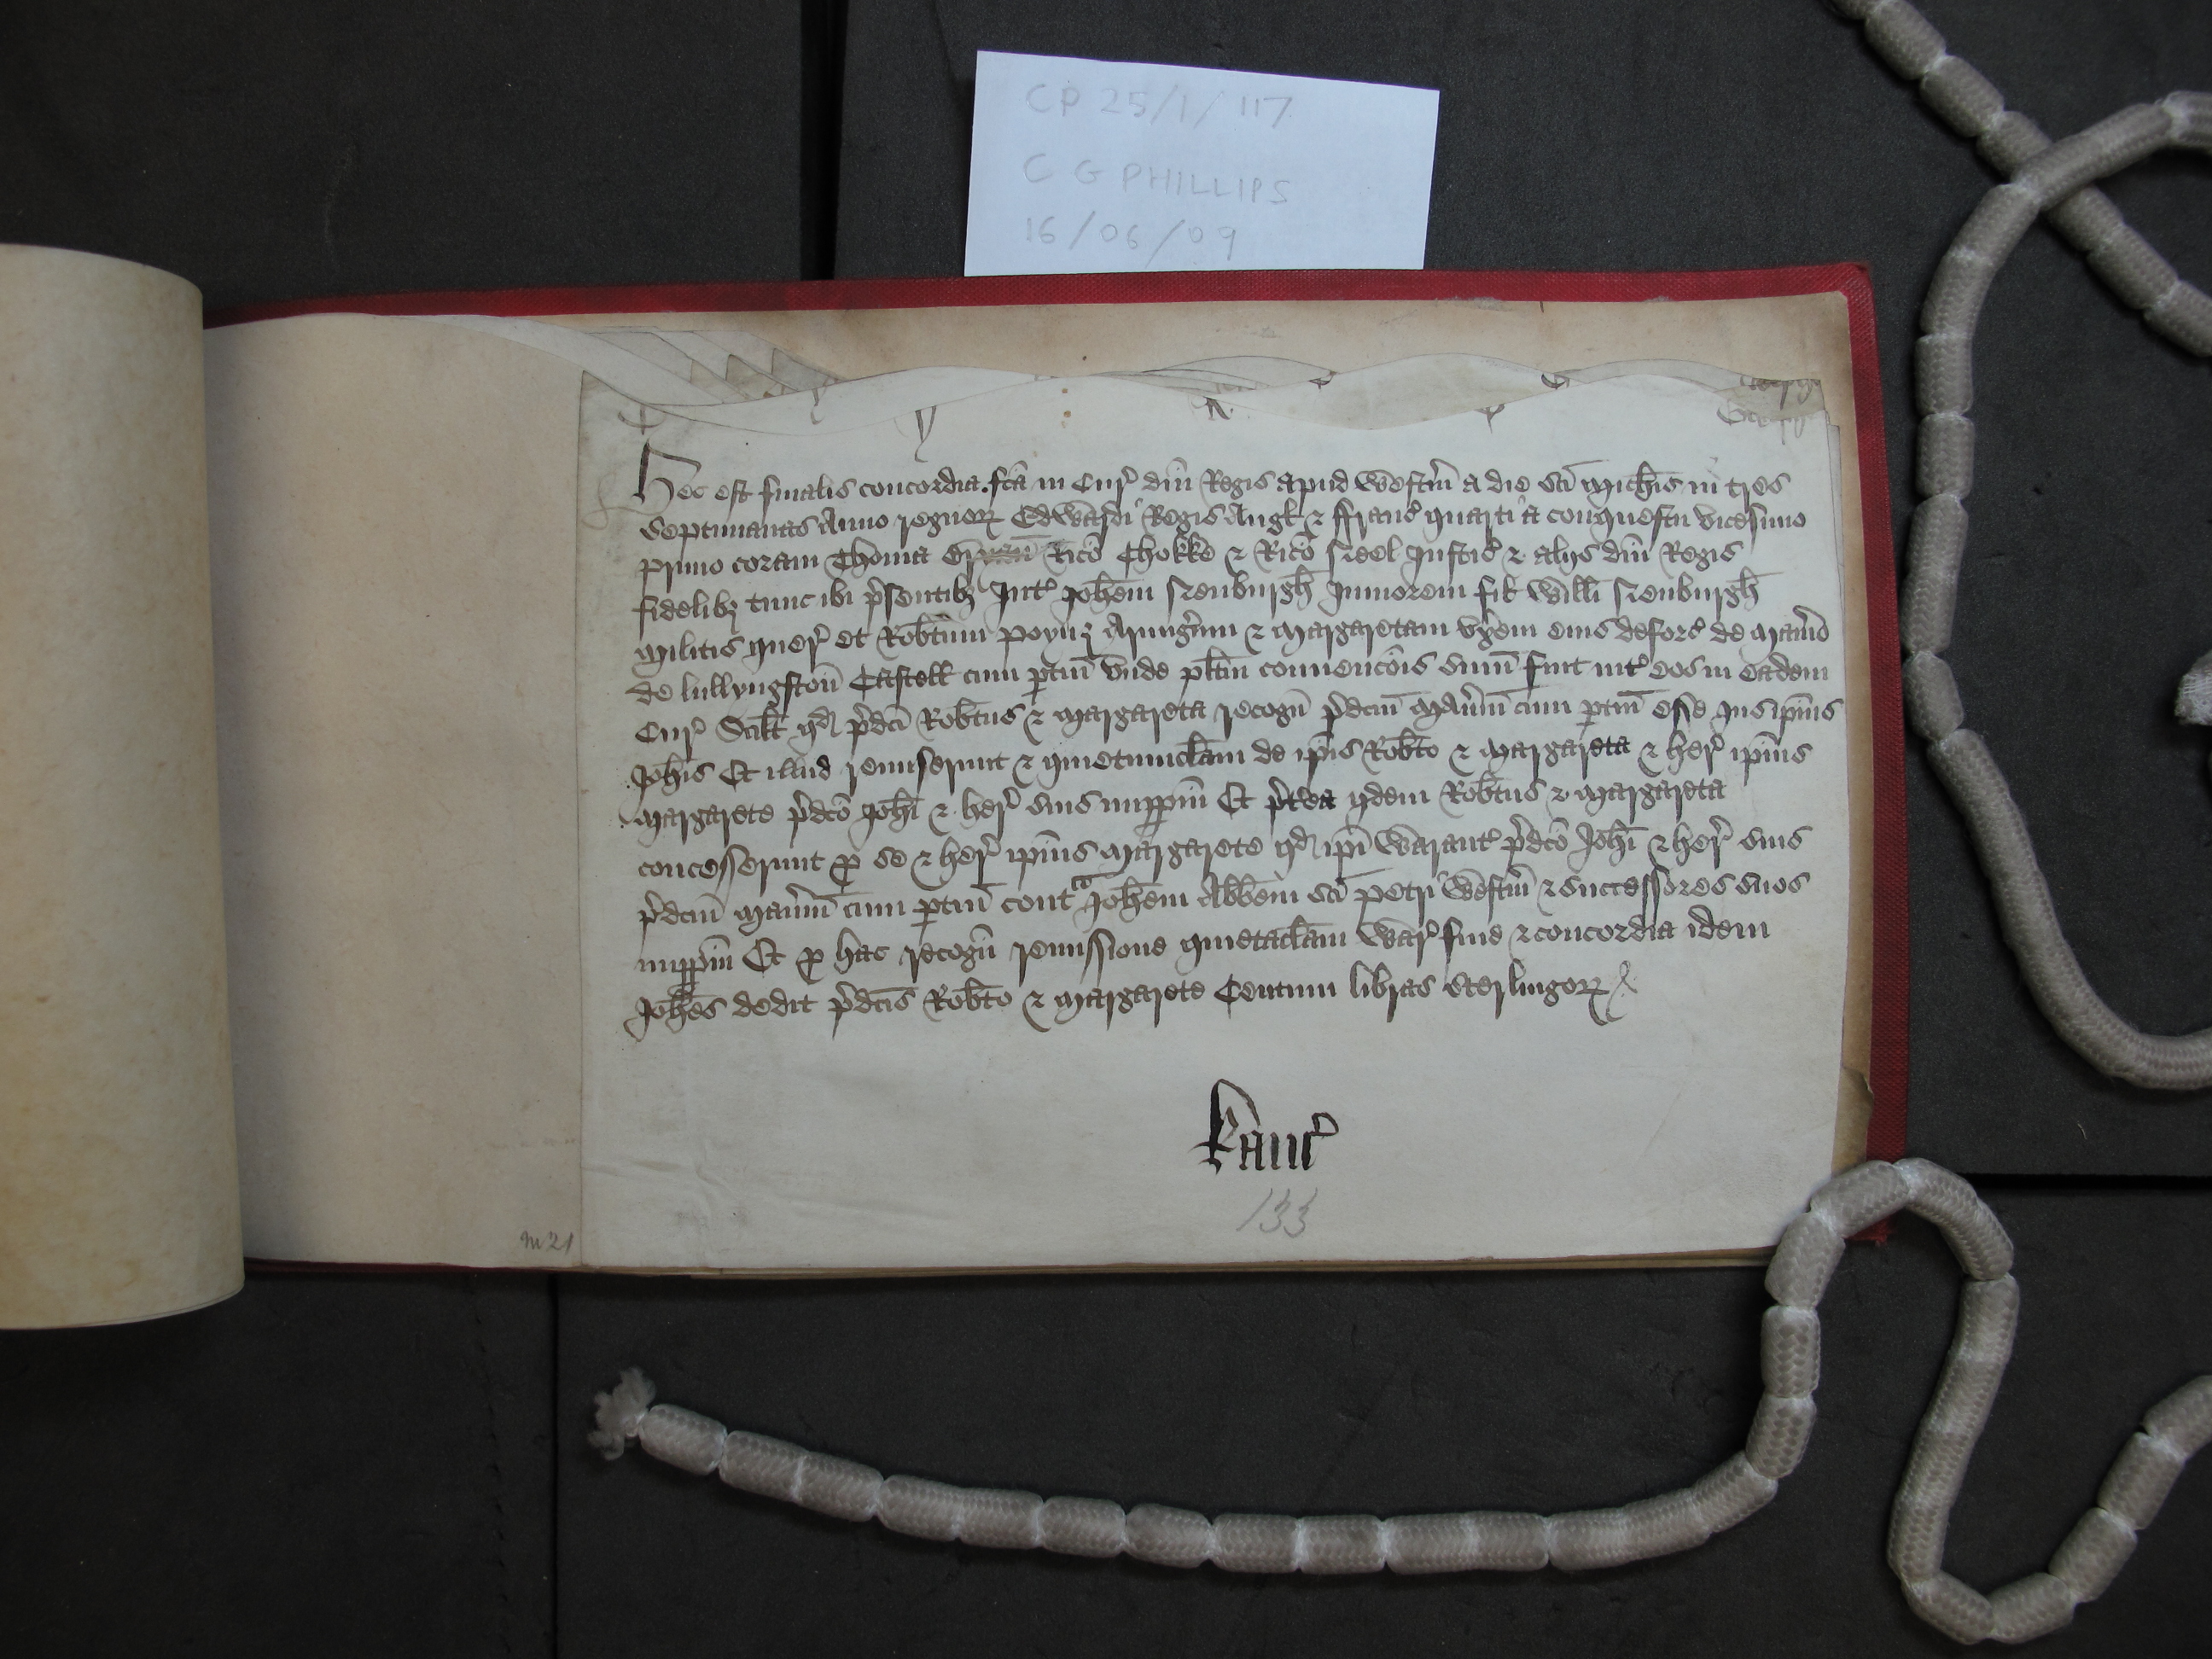 CP 25/1/117
C G PHILLIPS
16/06/09
Hec est finalis concordia fc̄a in Cur̉ dn̄i Regis apud Westm̄ a die sc̄i Mich̄is in tres
septimanas Anno regnoꝝ Edwardi Regis Angl̄ ⁊ ffranc̉ quarti a conquestu vicesimo
primo coram Thoma Ric̄o Chokke ⁊ Ric̄o Neel Justic̉ ⁊ alijs dn̄i Regis
fidelibꝫ tunc ibi p̉sentibꝫ Int̉ Joh̄em Neuburgh̄ Juniorem fil̄ Will̄i Neuburgh̄
Militis quer̉ et Rob̄tum Poynꝫ Armig̉um ⁊ Margaretam vx̉em eius deforc̉ de Man̉io
de lullyngston̄ Castell̄ cum ꝑtin̄ vnde pl̄itm̄ convenc̄ois sum̄ fuit int̉ eos in eadem
Cur̉ Scil̄t qd̄ p̉dc̄i Rob̄tus ⁊ Margareta recogn̄ p̉dcm̄ Man̉ium cum ꝑtin̄ esse Jus ip̄ius
Joh̄is Et illud remiserunt ⁊ quietumclam̄ de ip̄is Rob̄to ⁊ Margareta ⁊ her̉ ip̄ius
Margarete p̉dc̄o Joh̄i ⁊ her̉ suis imꝑpm̄ Et p̉t̉ea ijdem Rob̄tus ⁊ Margareta
concesserunt ꝑ se ⁊ her̉ ip̄ius Margarete qd̄ ip̄i Warant̉ p̉dc̄o Joh̄i ⁊ her̉ suis
p̉dcm̄ Man̉ium cum ꝑtin̄ contᵃ Joh̄em Abb̄em sc̄i Petri Westm̄ ⁊ successores suos
imꝑpm̄ Et ꝑ hac recogn̄ remissione quietaclam̄ War̉ fine ⁊ concordia idem
Joh̄es dedit p̉dc̄is Rob̄to ⁊ Margarete Centum libras sterlingoꝝ
Kanc̉
133
m 21